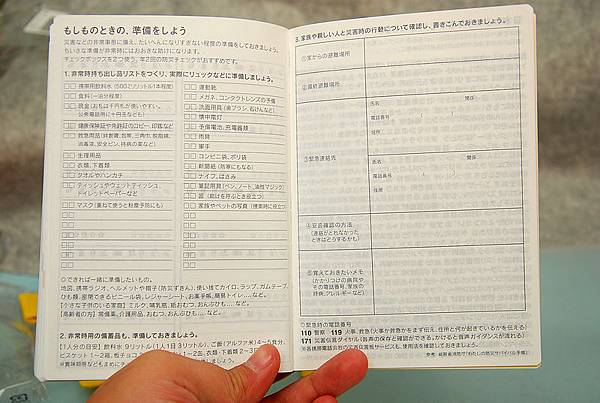 もしものときの、準備をしよう
災害などの非常事態に備え、たいへんになりすぎない程度の準備をしておきましょう。
ちいさな準備が非常時にはおおきな助けになります。
チェックボックスを2つ使う、年2回の防災チェックがおすすめです。
1. 非常時持ち出し品リストをつくり、実際にリュックなどに準備しましょう。
携帯用飲料水 (500ミリリットル1本程度)
食料(一泊分程度)
現金(おもは千円札が使いやすい。
公衆電話用に十円玉なども)
健康保険証や免許証のコピー、印鑑など
救急用品(絆創膏、包帯、三角巾、脱脂綿、
消毒液、安全ピン、持病の薬など)
生理用品
衣類、下着類
タオルやハンカチ
ティッシュやウェットティッシュ、
トイレットペーパーなど
マスク(重ねて使うと粉塵予防にも)
運動靴
メガネ、コンタクトレンズの予備
洗面用具(歯ブラシ、石けんなど)
懐中電灯
予備電池、充電器類
雨具
軍手
コンビニ袋、ポリ袋
新聞紙(防寒にもなる)
ナイフ、はさみ
筆記用具(ペン、ノート、油性マジック)
笛(助けを呼ぶとき役立つ)
家族やペットの写真(捜索時に役立つ)
◎できれば一緒に準備したいもの。
地図、携帯ラジオ、ヘルメットや帽子(防災ずきん)、使い捨てカイロ、ラップ、ガムテープ、
ひも類、密閉できるビニール袋、レジャーシート、お薬手帳、簡易トイレ.....など。
【小さな子供のいる家庭】ミルク、哺乳瓶、紙おむつ、おんぶひも.....など。
【高齢者の方】常備薬、介護用品、おむつ、おんぶひも.....など。
2. 非常時用の備蓄品も、準備しておきましょう。
【1人分の目安】飲料水 9リットル(1人1日 3リットル)、ご飯(アルファ米) 4〜5食分、
ビスケット 1〜2箱、板チョコ
1〜2缶、衣類・下着類 2〜3
※賞味期限などもまめにチ
3. 家族や親しい人と災害時の行動について確認し、書きこんでおきましょう。
①家からの避難場所
②最終避難場所
③緊急連絡先
氏名
関係
電話番号
住所
氏名
関係
電話番号
住所
④安否確認の方法
(連絡がとれなかった
ときはどうするかも)
⑤覚えておきたいメモ
(かかりつけの病院や
その電話番号、家族の
持病、アレルギーなど)
◎緊急時の電話番号
110 警察 119 火事、救急(火事か救急かをまず伝え、住所と何が起きているかを伝える)
171 災害伝言ダイヤル(音声の保存と確認ができる。かけると音声ガイダンスが流れる)
※各携帯電話会社の災害伝言板サービスも、使用法を確認しておきましょう。